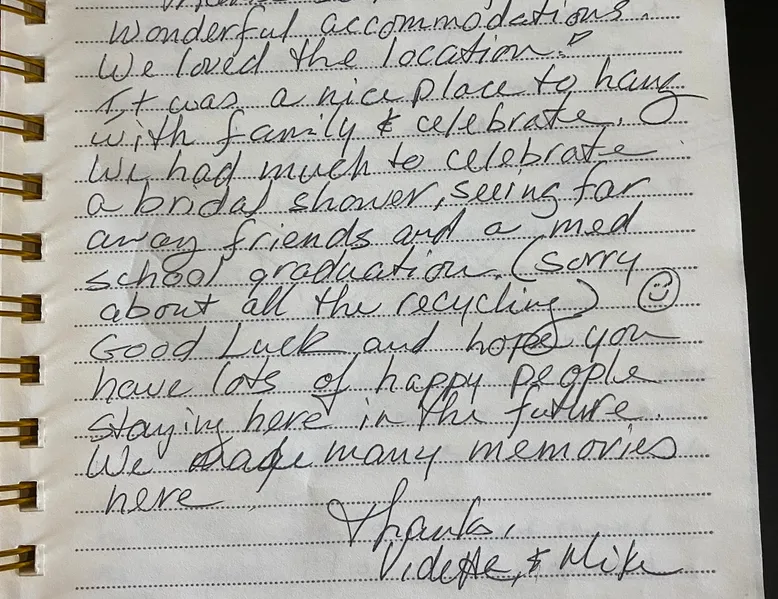 Wonderful accommodations.
We loved the location.
It was a nice place to hang
with family & celebrate.
We had much to celebrate
a bridal shower, seeing far
away friends and a med
school graduation. (sorry
about all the recycling)
Good Luck and hope you
have lots of happy people
staying here in the future.
We made many memories
here.
Thanks,
Vidette, & Mike